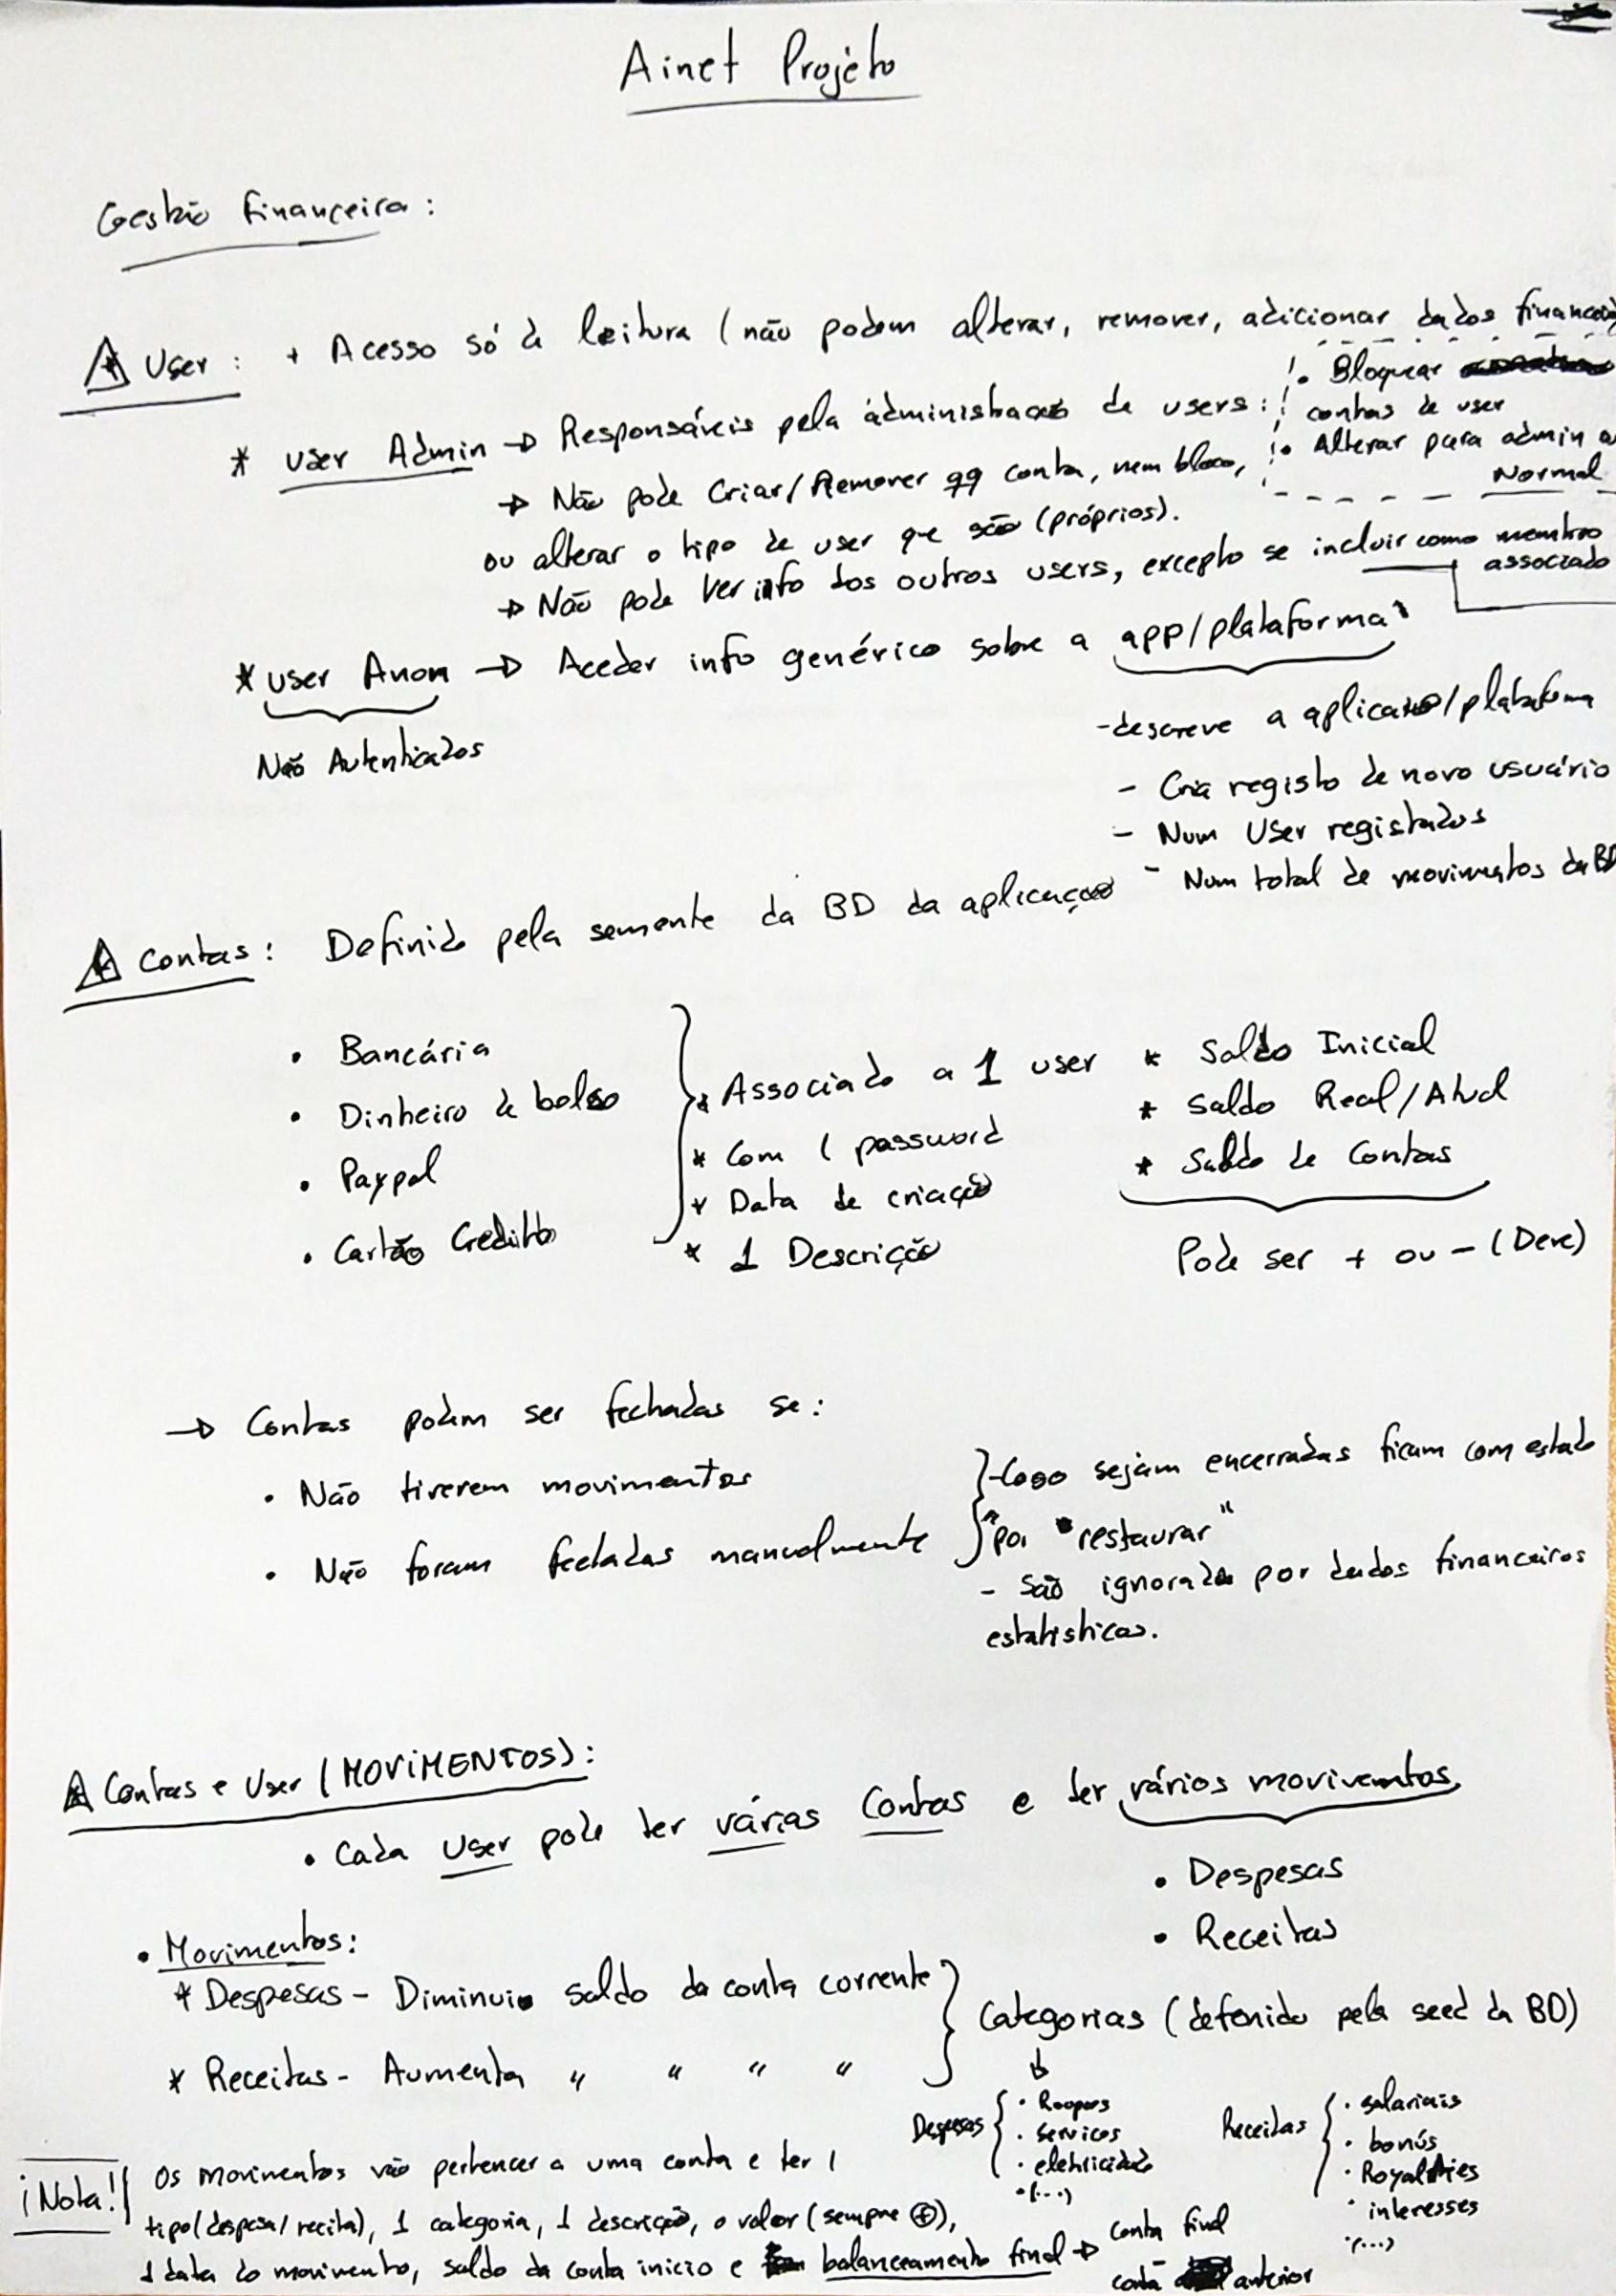 Ainet Projeto
Gestão financeira:
User: + Acesso só de leitura (não podem alterar, remover, adicionar dados
• Bloquear
contas de user
• Alterar para admin
Normal
* User Admin → Responsáveis pela administração de users:
→ Não pode Criar/Remover qq conta, nem bloco,
ou alterar o tipo de user que são (próprios).
→ Não pode Ver info dos outros users, excepto se incluir como membro
associado
* User Anom → Aceder info genérico sobre a app/plataforma
Não Autenticados
- descreve a aplicação/plataforma
- Cria registo de novo usuário
- Num User registados
- Num total de movimentos da BD
Contas: Definido pela semente da BD da aplicação
• Bancária
• Dinheiro de bolso
• Paypal
• Cartão Credito
* Associado a 1 user
* Com 1 password
* Data de criação
* 1 Descrição
* Saldo Inicial
* Saldo Real/Atual
* Saldo de Contas
Pode ser + ou - (Deve)
→ Contas podem ser fechadas se:
• Não tiverem movimentos
• Não foram fechadas manualmente
- Caso sejam encerradas ficam com estado
"por restaurar"
- São ignorada por dados financeiros
estatisticas.
Contas e User (MOVIMENTOS):
• Cada User pode ter várias Contas e ter vários movimentos
• Despesas
• Receitas
• Movimentos:
* Despesas - Diminui saldo da conta corrente
* Receitas - Aumenta " " " "
Categorias (defenido pela seed da BD)
Despesas
• Roupas
• Servicos
• eletricidade
• (...)
Receitas
• salariais
• bonús
• Royalties
• interesses
• (...)
¡Nota! Os movimentos vão pertencer a uma conta e ter 1
tipo (despesa/receita), 1 categoria, 1 descrição, o valor (sempre +),
1 data do movimento, saldo da conta inicio e balanceamento final → conta final
-
conta anterior